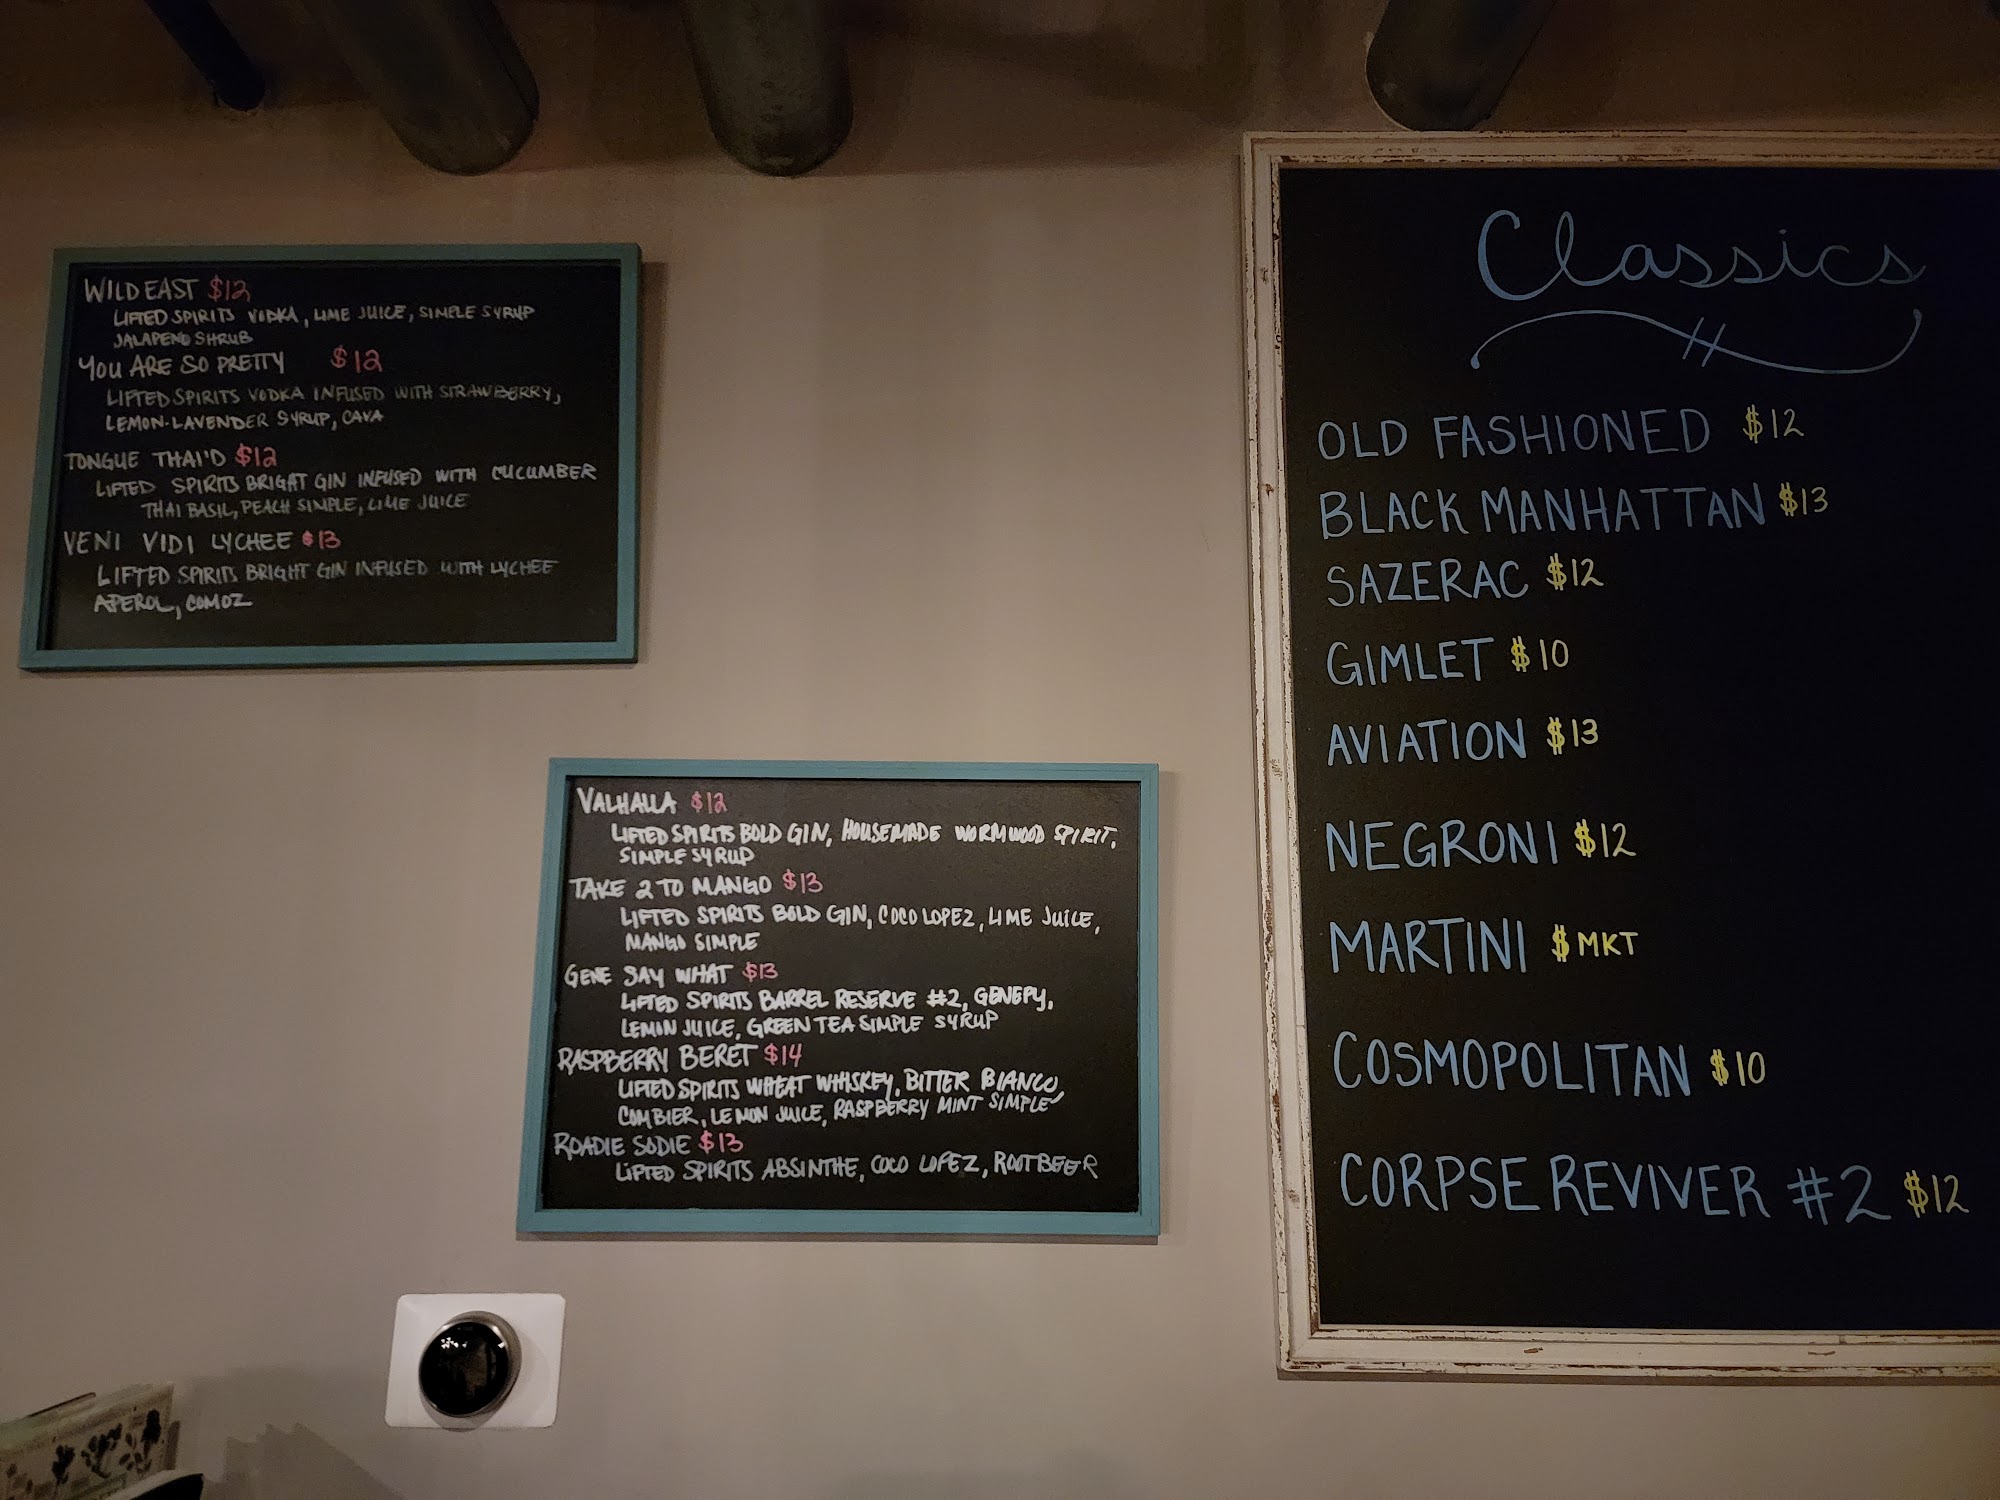 WILD EAST $12
LIFTED SPIRITS VODKA, LIME JUICE, SIMPLE SYRUP
JALAPENO SHRUB
YOU ARE SO PRETTY $12
LIFTED SPIRITS VODKA INFUSED WITH STRAWBERRY,
LEMON-LAVENDER SYRUP, CAVA
TONGUE THAI'D $12
LIFTED SPIRITS BRIGHT GIN INFUSED WITH CUCUMBER
THAI BASIL, PEACH SIMPLE, LIME JUICE
VENI VIDI LYCHEE $13
LIFTED SPIRITS BRIGHT GIN INFUSED WITH LYCHEE
APEROL, COMOZ
VALHALLA $12
LIFTED SPIRITS BOLD GIN, HOUSEMADE WORMWOOD SPIRIT,
SIMPLE SYRUP
TAKE 2 TO MANGO $13
LIFTED SPIRITS BOLD GIN, COCO LOPEZ, LIME JUICE,
MANGO SIMPLE
GENE SAY WHAT $13
LIFTED SPIRITS BARREL RESERVE #2, GENEPY,
LEMON JUICE, GREEN TEA SIMPLE SYRUP
RASPBERRY BERET $14
LIFTED SPIRITS WHEAT WHISKEY, BITTER BIANCO,
COMBIER, LEMON JUICE, RASPBERRY MINT SIMPLE
ROADIE SODIE $13
LIFTED SPIRITS ABSINTHE, COCO LOPEZ, ROOTBEER
Classics
OLD FASHIONED $12
BLACK MANHATTAN $13
SAZERAC $12
GIMLET $10
AVIATION $13
NEGRONI $12
MARTINI $MKT
COSMOPOLITAN $10
CORPSE REVIVER #2 $12